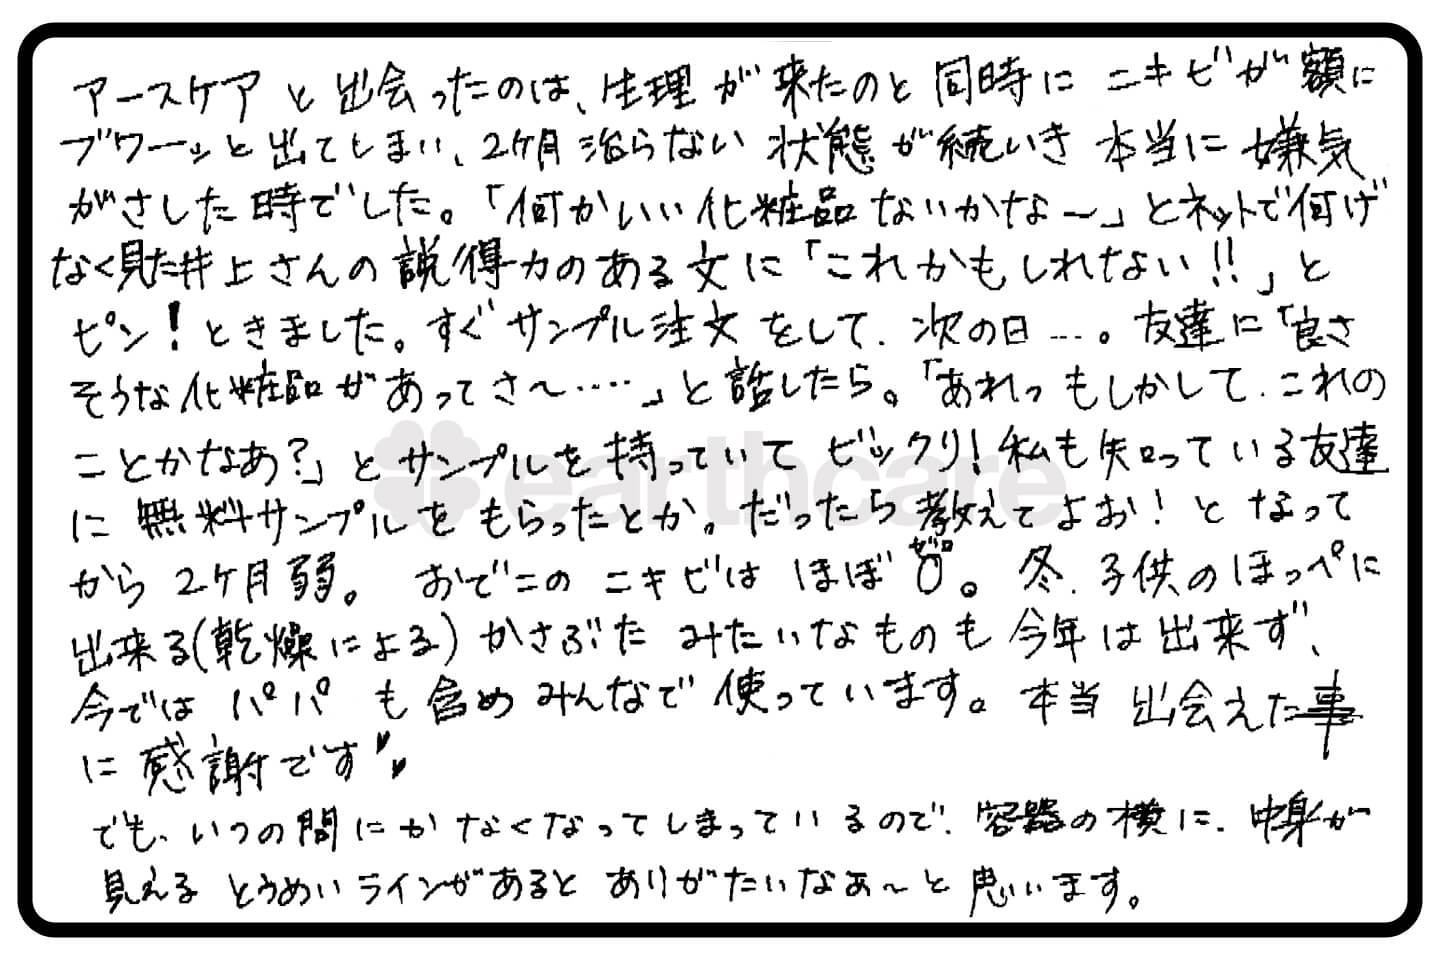 アースケアと出会ったのは、生理が来たのと同時にニキビが額に
ブワーッと出てしまい、2ヶ月治らない状態が続いき本当に嫌気
がさした時でした。「何かいい化粧品ないかな〜」とネットで何げ
なく見た井上さんの説得力のある文に「これかもしれない!!」と
ピン!ときました。すぐサンプル注文をして、次の日…。友達に「良さ
そうな化粧品があってさ〜……」と話したら。「あれっもしかして、これの
ことかなあ?」とサンプルを持っていてビックリ!私も知っている友達
に無料サンプルをもらったとか。だったら教えてよお!となって
から2ヶ月弱。おでこのニキビはほぼ0。冬、子供のほっぺに
ゼロ
出来る(乾燥による)かさぶたみたいなものも今年は出来ず、
今ではパパも含めみんなで使っています。本当出会えた事
に感謝です♥♥
でも、いつの間にかなくなってしまっているので、容器の横に、中身が
見えるとうめいラインがあるとありがたいなぁ〜と思います。
earthcare